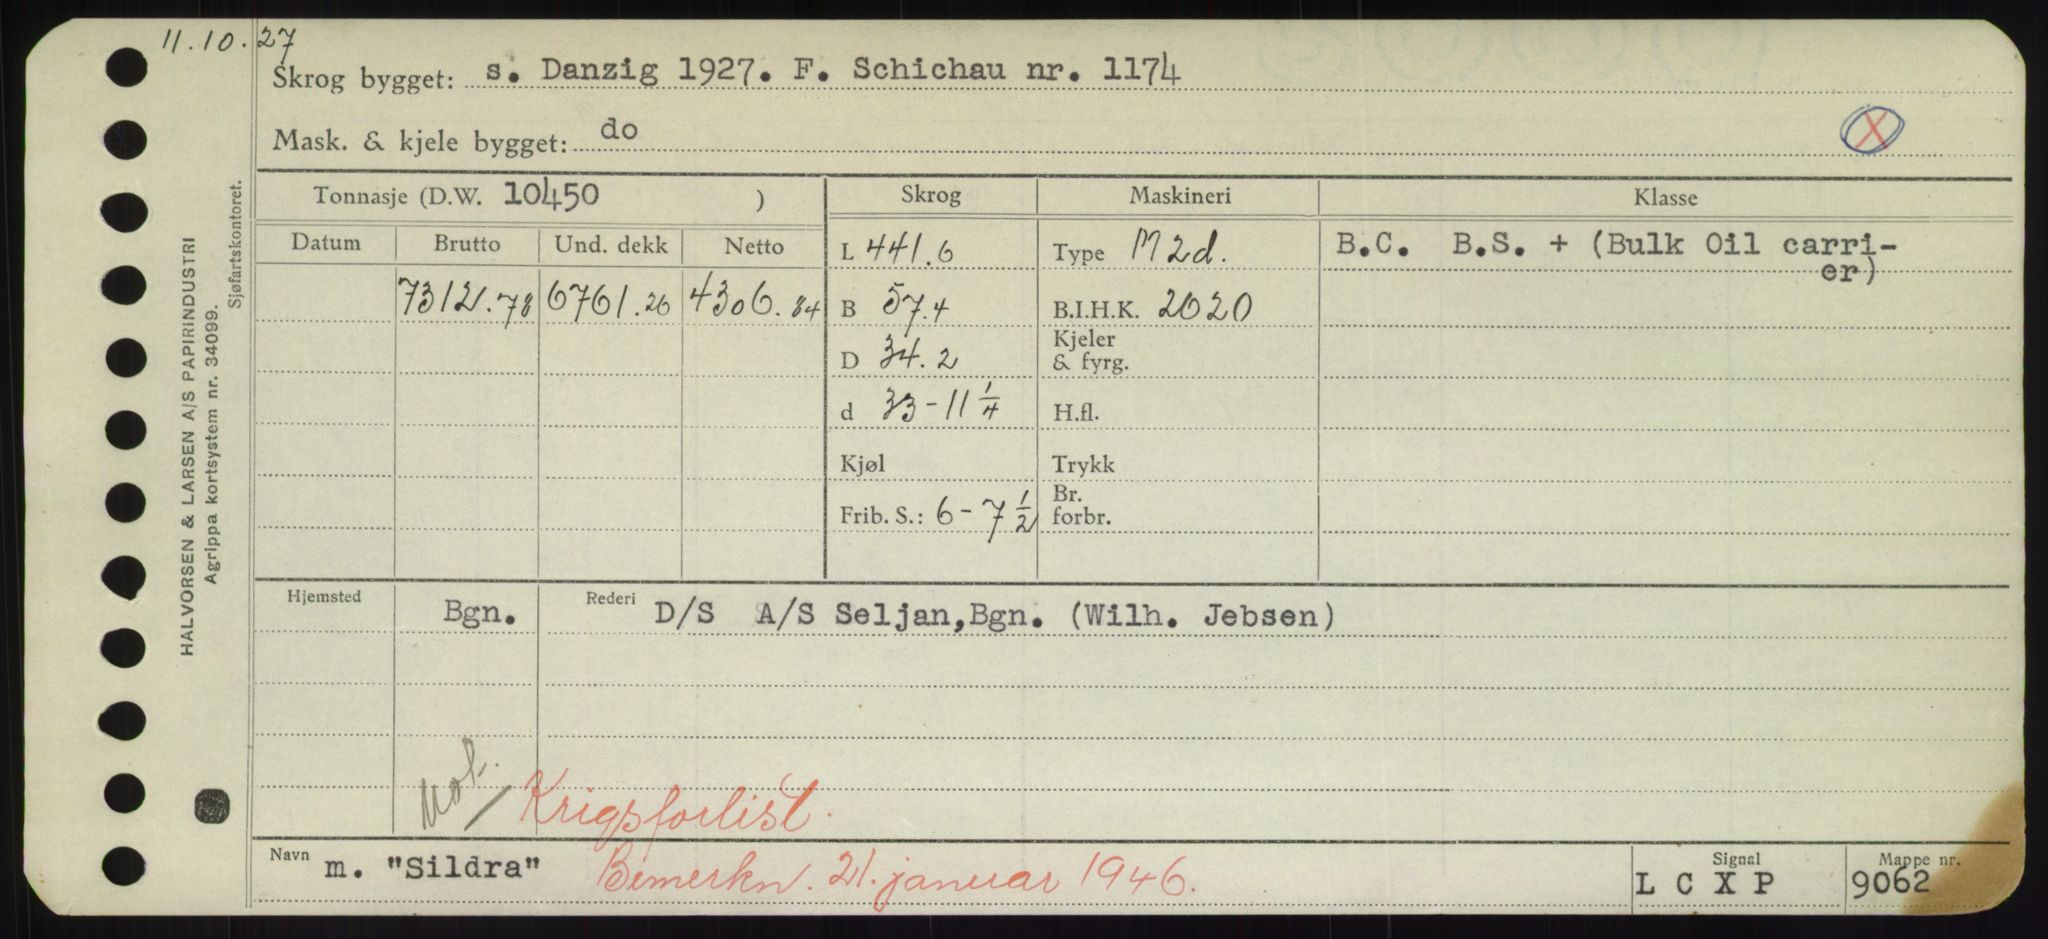 11.10.27
Skrog bygget: s. Danzig 1927. F. Schichau nr. 1174
Mask. & kjele bygget: do
X
Tonnasje (D.W. 10450 ) Skrog Maskineri Klasse
Datum Brutto Und. dekk Netto L 441.6 Type M2d. B.C. B.S. + (Bulk Oil carri-
er)
7312.78 6761.26 4306.84 B 57.4 B.I.H.K. 2020
D 34.2 Kjeler & fyrg.
d 33-11 1/4 H.fl.
Kjøl Trykk
Frib. S.: 6-7 1/2 Br. forbr.
Hjemsted Bgn. Rederi D/S A/S Seljan,Bgn. (Wilh. Jebsen)
Krigsforlist.
Navn m. "Sildra" Bemerkn. 21. januar 1946. Signal L C X P Mappe nr. 9062
HALVORSEN & LARSEN A/S PAPIRINDUSTRI
Agrippa kortsystem nr. 34099.
Sjøfartskontoret.